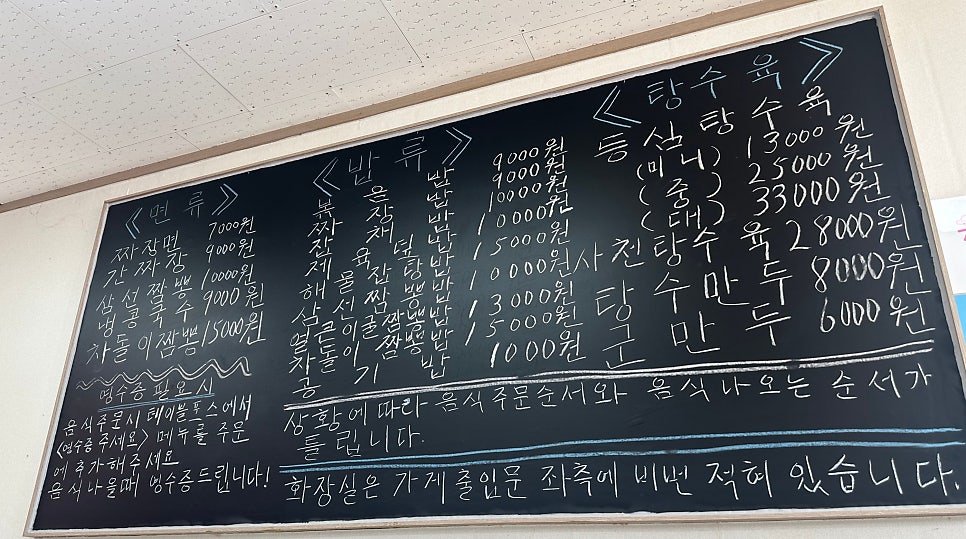 《면류》
짜장면 7000원
간짜장 9000원
삼선짬뽕 10000원
냉콩국수 9000원
차돌이짬뽕 15000원
영수증 필요시
음식주문시 테이블포스에서
<영수증주세요> 메뉴를 주문
에 추가해주세요
음식나올때 영수증드립니다!
《밥류》
볶은밥 9000원
짜장밥 9000원
잡채밥 10000원
제육덮밥 10000원
해물잡탕밥 15000원
삼선짬뽕밥 10000원
얼큰이굴짬뽕밥 13000원
차돌이짬뽕밥 15000원
공기밥 1000원
《탕수육》
등심탕수육
(미니) 13000원
(중) 25000원
(대) 33000원
사천탕수육 28000원
탕수만두 8000원
군만두 6000원
상황에 따라 음식주문순서와 음식나오는 순서가
틀립니다.
화장실은 가게출입문 좌측에 비번 적혀 있습니다.